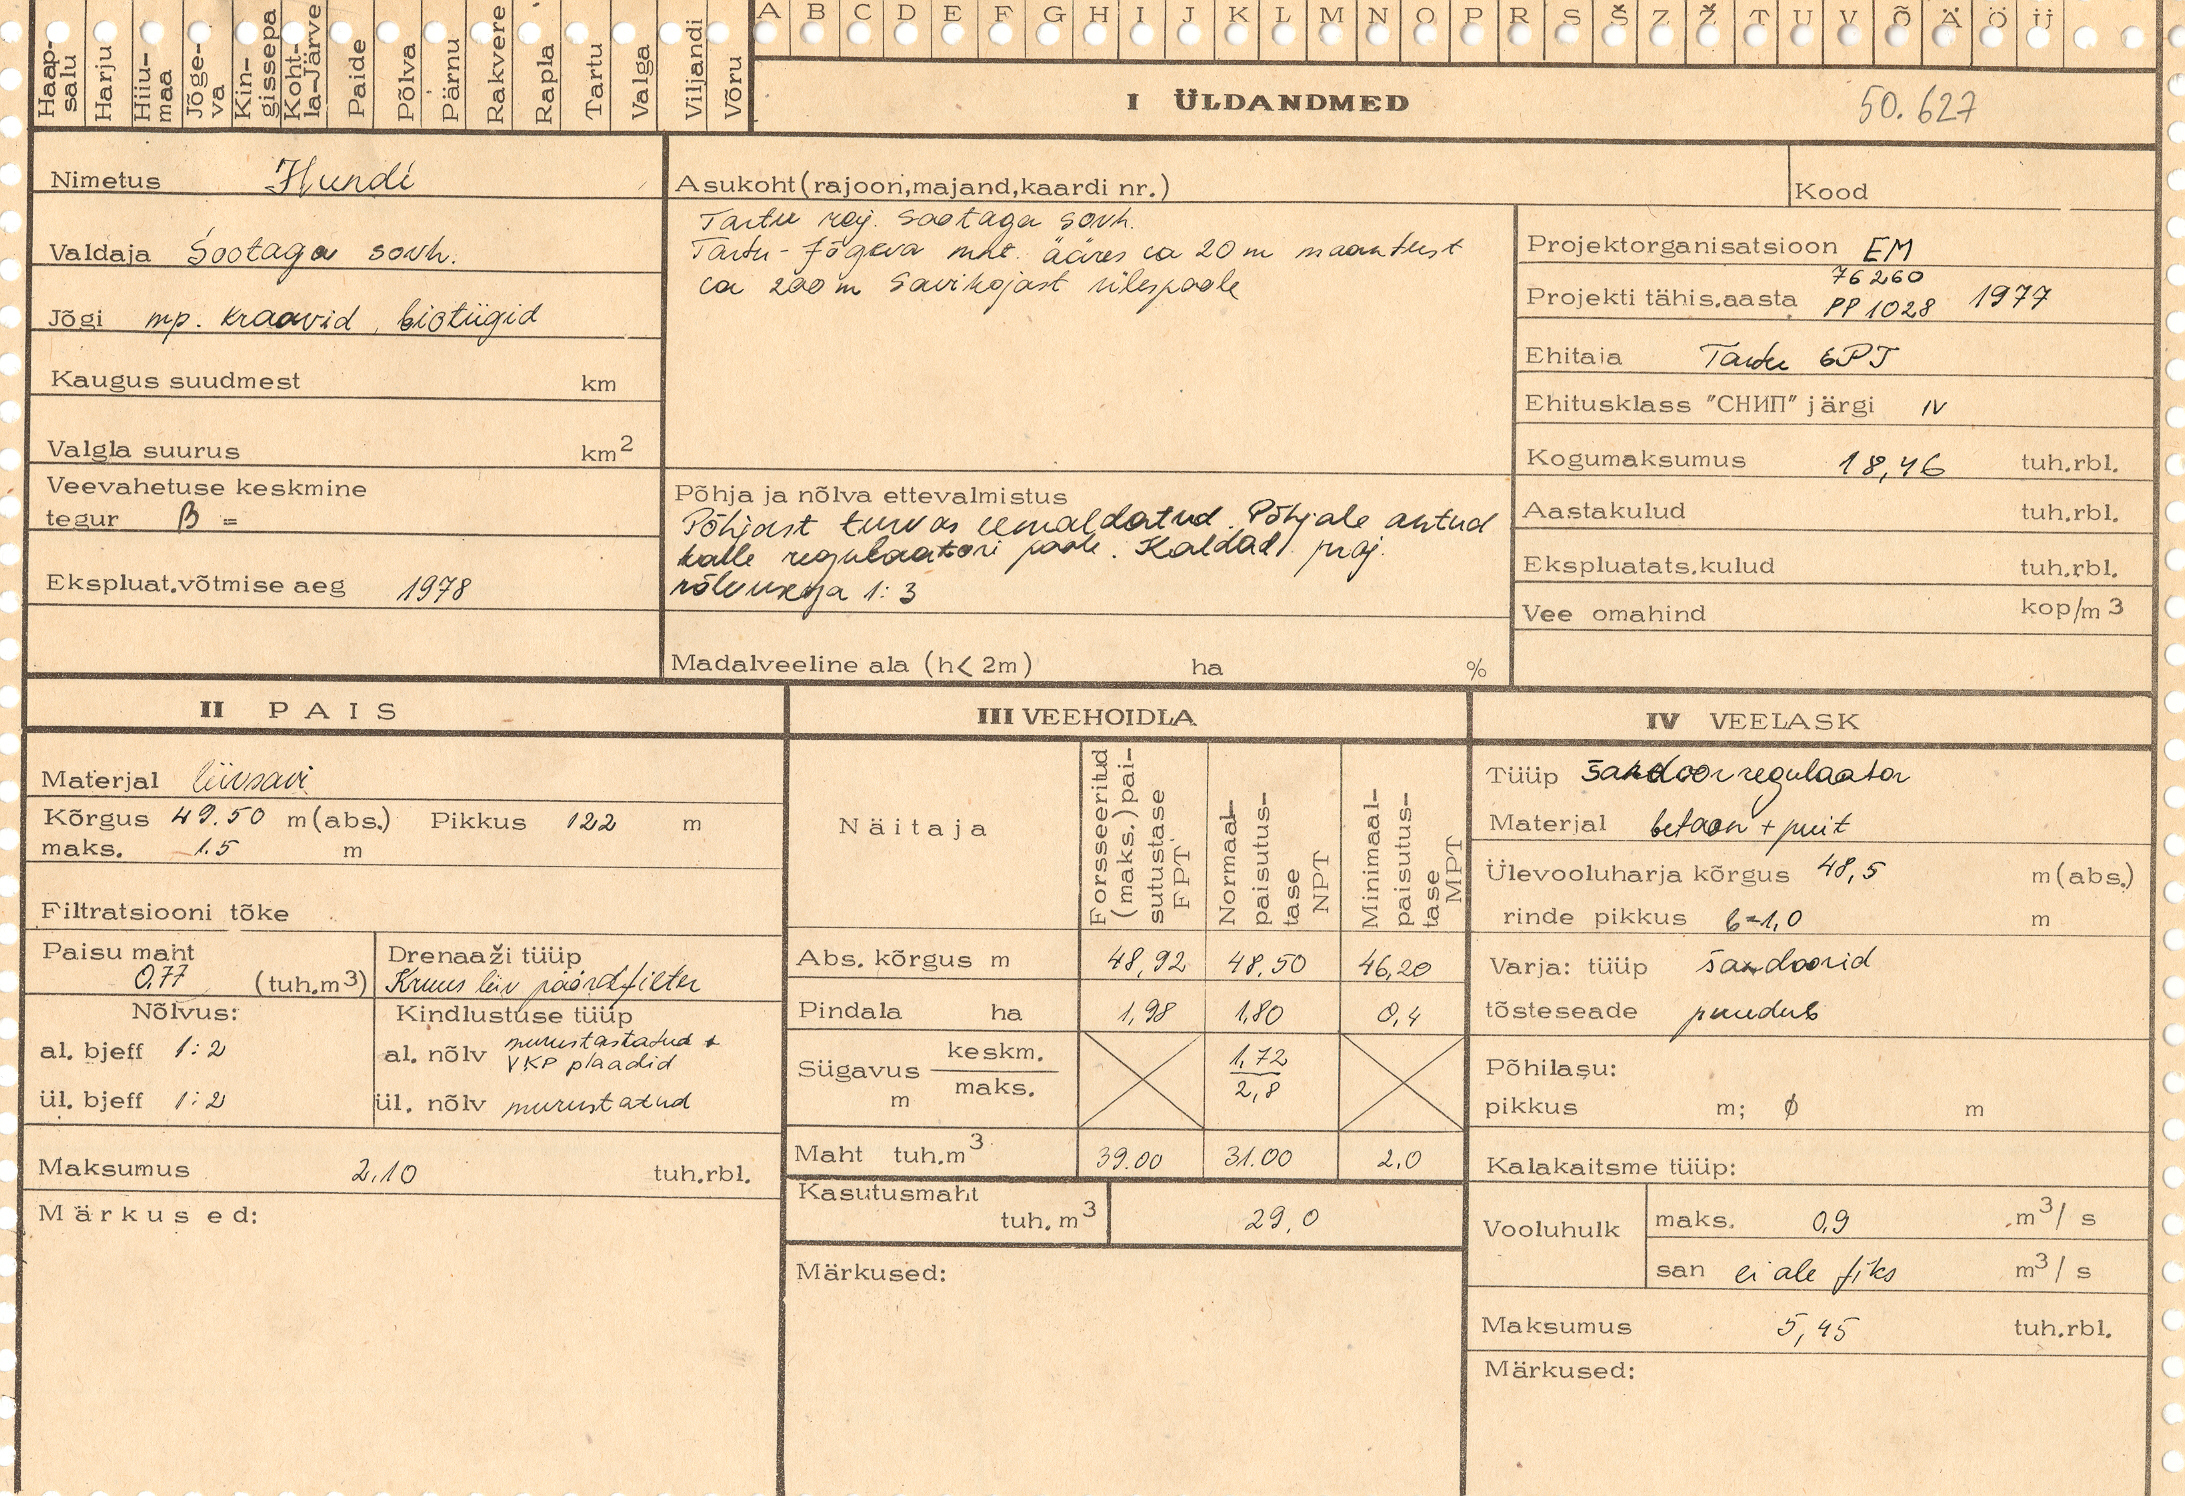 A B C D E F G H I J K L M N O P R S Š Z Ž T U V Õ Ä Ö ÜJ
Haap-salu
Harju
Hiiu-maa
Jõge-va
Kin-gissepa
Koht-la-Järve
Paide
Põlva
Pärnu
Rakvere
Rapla
Tartu
Valga
Viljandi
Võru
I ÜLDANDMED 50.627
Nimetus Hundi
Valdaja Sootaga sovh.
Jõgi mp. kraavid, biotiigid
Kaugus suudmest km
Valgla suurus km2
Veevahetuse keskmine
tegur β =
Ekspluat.võtmise aeg 1978
Asukoht(rajoon,majand,kaardi nr.)
Kood
Tartu raj. Sootaga sovh.
Tartu-Jõgeva mnt. ääres ca 20 m maanteest
ca 200 m Savikojast ülespoole
Põhja ja nõlva ettevalmistus
Põhjast turvas eemaldatud. Põhjale antud
kalle regulaatori poole. Kaldad proj.
nõlvusega 1:3
Madalveeline ala (h< 2m) ha %
Projektorganisatsioon EM
76260
Projekti tähis.aasta PP 1028 1977
Ehitaja Tartu EPT
Ehitusklass "СНИП" järgi IV
Kogumaksumus 18,46 tuh.rbl.
Aastakulud tuh.rbl.
Ekspluatats.kulud tuh.rbl.
Vee omahind kop/m3
II PAIS
Materjal liivsavi
Kõrgus 49.50 m(abs.) Pikkus 122 m
maks. 1.5 m
Filtratsiooni tõke
Paisu maht
0,77 (tuh.m3)
Drenaaži tüüp
Kruus liiv pöördfilter
Nõlvus:
al. bjeff 1:2
ül. bjeff 1:2
Kindlustuse tüüp
al. nõlv murustatud +
VKP plaadid
ül. nõlv murustatud
Maksumus 2,10 tuh.rbl.
Märkused:
III VEEHOIDLA
Näitaja
Forsseeritud (maks.)pai-sutustase FPT
Normaal-paisutus-tase NPT
Minimaal-paisutus-tase MPT
Abs. kõrgus m 48,92 48,50 46,20
Pindala ha 1,98 1,80 0,4
Sügavus m keskm. 1,72
maks. 2,8
Maht tuh.m3 39.00 31.00 2,0
Kasutusmaht
tuh.m3 29,0
Märkused:
IV VEELASK
Tüüp šandoorregulaator
Materjal betoon + puit
Ülevooluharja kõrgus 48,5 m(abs.)
rinde pikkus b=1,0 m
Varja: tüüp šandoorid
tõsteseade puudub
Põhilasu:
pikkus m; ϕ m
Kalakaitsme tüüp:
Vooluhulk maks. 0,9 m3/s
san ei ole fiks m3/s
Maksumus 5,45 tuh.rbl.
Märkused: